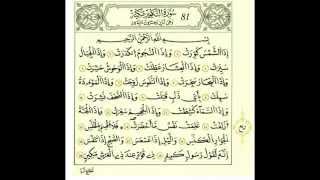 سُورَةُ التَّكْوِيرِ مَكِّيَّة 81
بِسْمِ اللَّهِ الرَّحْمَٰنِ الرَّحِيمِ
إِذَا الشَّمْسُ كُوِّرَتْ وَإِذَا النُّجُومُ انْكَدَرَتْ وَإِذَا الْجِبَالُ
سُيِّرَتْ وَإِذَا الْعِشَارُ عُطِّلَتْ وَإِذَا الْوُحُوشُ حُشِرَتْ
وَإِذَا الْبِحَارُ سُجِّرَتْ وَإِذَا النُّفُوسُ زُوِّجَتْ وَإِذَا الْمَوْءُودَةُ
سُئِلَتْ بِأَيِّ ذَنْبٍ قُتِلَتْ وَإِذَا الصُّحُفُ نُشِرَتْ
وَإِذَا السَّمَاءُ كُشِطَتْ وَإِذَا الْجَحِيمُ سُعِّرَتْ وَإِذَا الْجَنَّةُ
أُزْلِفَتْ عَلِمَتْ نَفْسٌ مَا أَحْضَرَتْ فَلَا أُقْسِمُ بِالْخُنَّسِ
الْجَوَارِ الْكُنَّسِ وَاللَّيْلِ إِذَا عَسْعَسَ وَالصُّبْحِ إِذَا تَنَفَّسَ
إِنَّهُ لَقَوْلُ رَسُولٍ كَرِيمٍ ذِي قُوَّةٍ عِنْدَ ذِي الْعَرْشِ مَكِينٍ